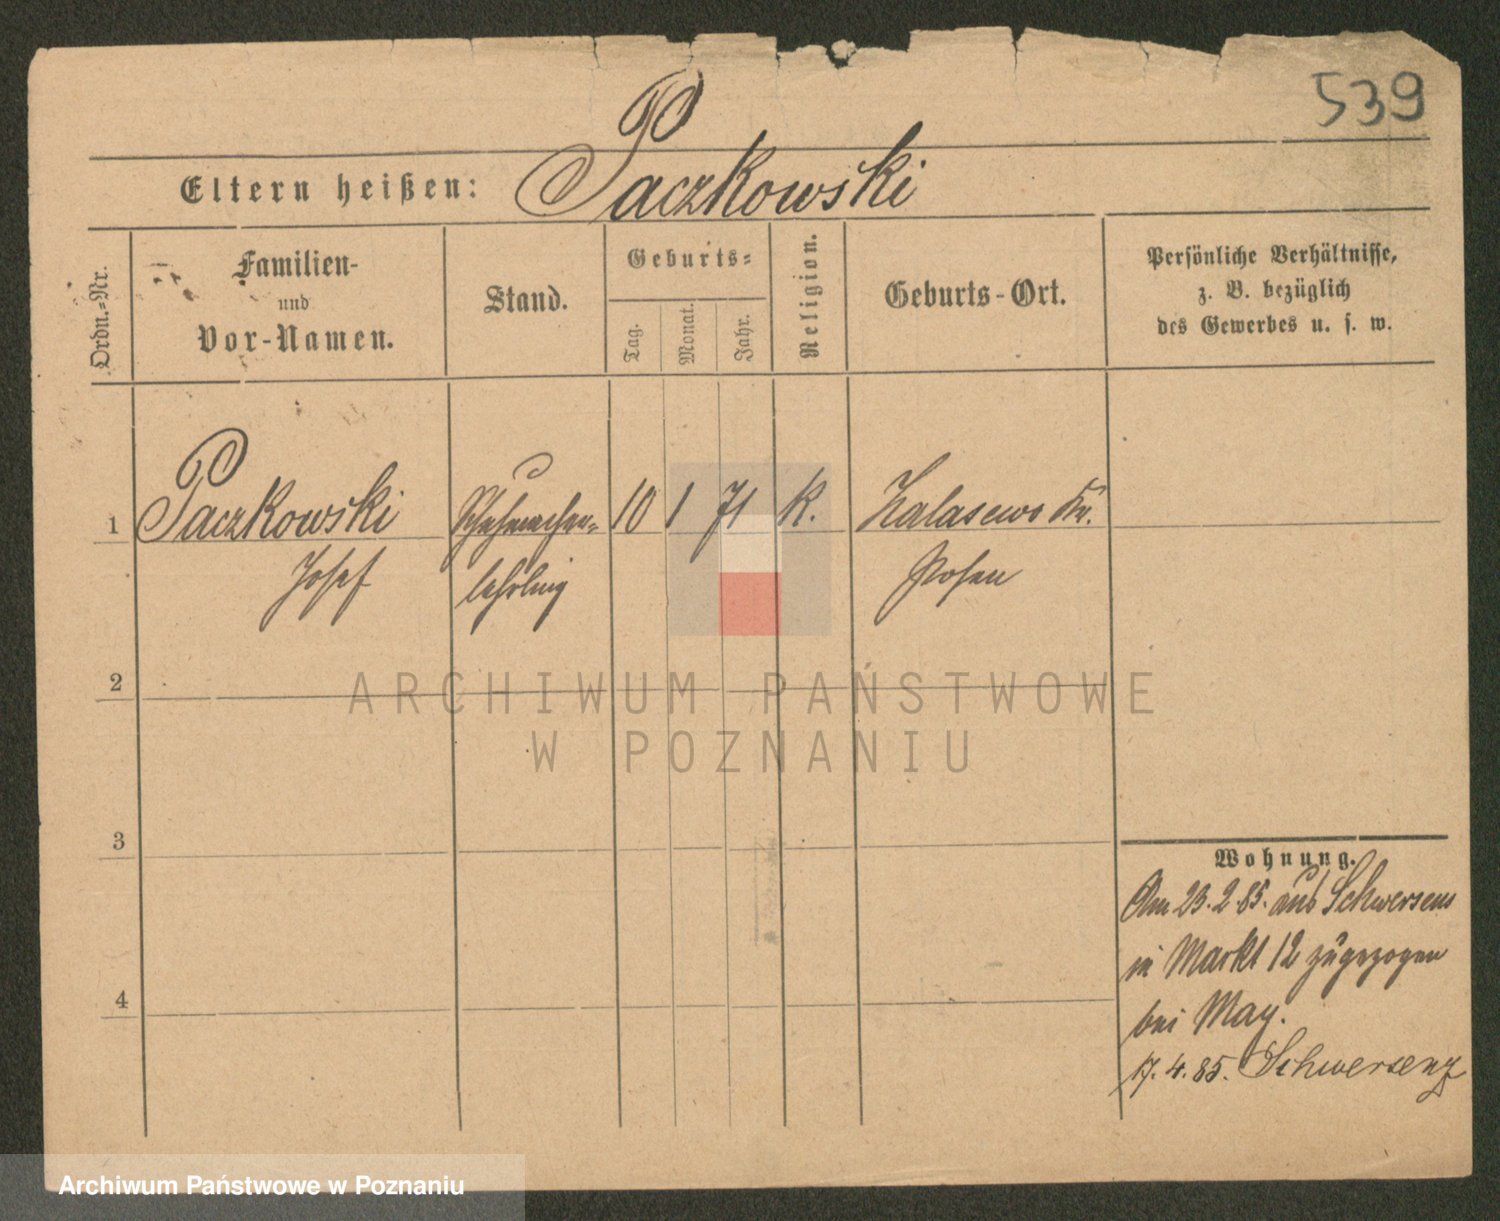 539
Eltern heißen: Paczkowski
Ordn.=Nr.
Familien-
und
Vor-Namen.
Stand.
Geburts=
Tag.
Monat.
Jahr.
Religion.
Geburts-Ort.
Persönliche Verhältnisse,
z. B. bezüglich
des Gewerbes u. s. w.
1 Paczkowski Schuhmacher= 10 1 71 K. Zalasewo Kr.
Josef lehrling Posen
2
ARCHIWUM PAŃSTWOWE
W POZNANIU
3
Wohnung.
Am 23.2.85. aus Schwersenz
in Markt 12 zugezogen
4
bei May.
17.4.85. Schwersenz
Archiwum Państwowe w Poznaniu